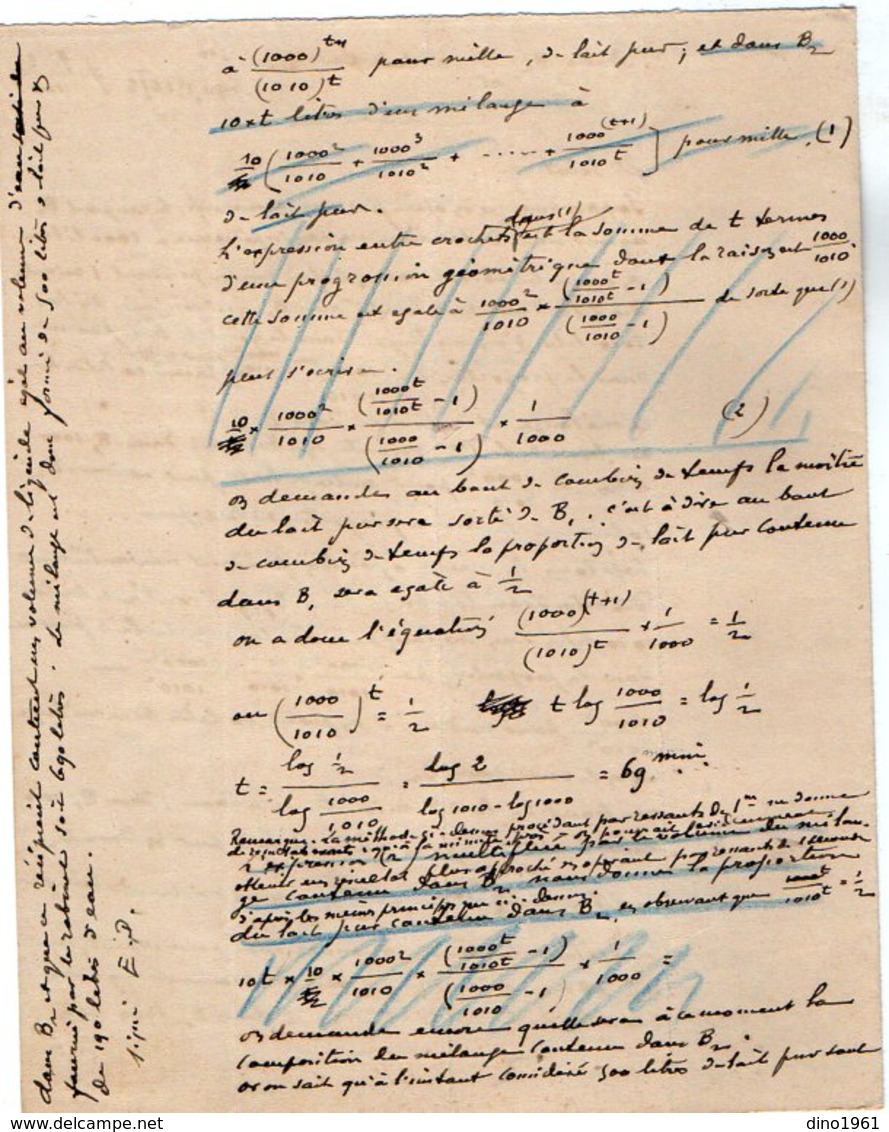 à (1000)^{t+1} / (1010)^t pour mille, de lait pur ; et dans B2
10 × t litres d'un mélange à
10/t (1000²/1010 + 1000³/1010² + ..... + 1000^{(t+1)}/1010^t ] pour mille, (1)
de lait pur.
L'expression entre crochets dans (1) est la somme de t termes
d'une progression géométrique dont la raison est 1000/1010.
cette somme est egale à 1000²/1010 × (1000^t/1010^t - 1) / (1000/1010 - 1) de sorte que (1)
peut s'écrire.
10/t × 1000²/1010 × (1000^t/1010^t - 1) / (1000/1010 - 1) × 1/1000 (2)
on demande au bout de combien de temps la moitié
du lait pur sera sorti de B1. c'est à dire au bout
de combien de temps la proportion de lait pur contenu
dans B1 sera egale à 1/2
on a donc l'équation (1000)^{(t+1)} / (1010)^t × 1/1000 = 1/2
ou (1000/1010)^t = 1/2 t log 1000/1010 = log 1/2
t = log 1/2 / log 1000/1010 = log 2 / log 1010 - log 1000 = 69 min
Remarque. La méthode ci-dessus procédant par ressauts de 1m ne donne
de résultat exact qu'à 1 minute près on pourrait
L'expression (2) multiplié par le volume du mélan-
obtenir un résultat plus approché en opérant par ressauts de 1 seconde
ge contenu dans B2 nous donne la proportion
d'après les mêmes principes que ci-dessus.
du lait pur contenu dans B2, en observant que 1000^t/1010^t = 1/2
10t × 10/t × 1000²/1010 × (1000^t/1010^t - 1) / (1000/1010 - 1) × 1/1000 =
on demande encore quelle sera à ce moment la
composition du mélange contenu dans B2.
or on sait qu'à l'instant considéré 500 litres de lait pur sont
dans B2 et que ce récipient contient un volume de liquide égal au volume d'eau
fourni par le robinet soit 690 litres. Le mélange est donc formé de 500 litres de lait pur et
de 190 litres d'eau.
signé E.P.
dino1961